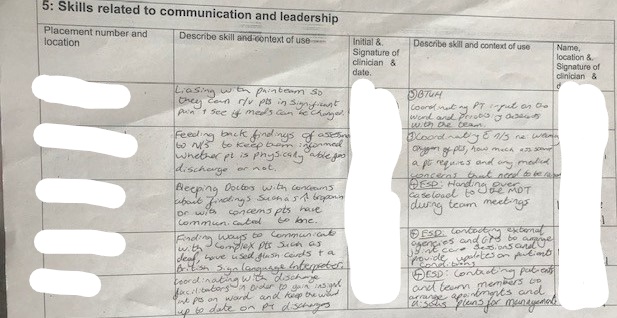 5: Skills related to communication and leadership
Placement number and
location
Describe skill and context of use
Initial &
Signature of
clinician &
date.
Describe skill and context of use
Name,
location &
Signature of
clinician &
Liasing with pain team so
they can r/v pts in significant
pain + see if meds can be changed.
Feeding back findings of
to N/S to keep team informed
whether pt is physically able for
discharge or not.
Bleeping Doctors with concerns
about findings such as ↑ troponin
or with concerns pts have
communicated to me.
Finding ways to communicate
with complex pts such as
deaf, have used flash cards + a
British Sign language Interpreter.
coordinating with discharge
facilitators in order to gain insight
at pts on ward and keep the ward
up to date on pt discharges
BTUH
coordinating PT input on the
ward and
with the team.
Coordinating
oxygen of pts, how much
a pt requires and any medical
concerns that need to be
ESD: Handing over
caseload to the MDT
during team meetings
ESD: Contacting external
agencies and GPs to arrange
joint care sessions and
provide updates on patients
ESD: Contacting patients
and team members to
arrange appointments and
discuss plans for management